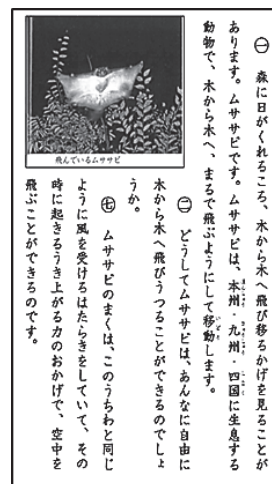 ㊀ 森に日がくれるころ、木から木へ飛び移るかげを見ることが
あります。ムササビです。ムササビは、本州・九州・四国に生息する
動物で、木から木へ、まるで飛ぶようにして移動します。
㊁ どうしてムササビは、あんなに自由に
木から木へ飛びうつることができるのでしょ
うか。
㊆ ムササビのまくは、このうちわと同じ
ように風を受けるはたらきをしていて、その
時に起きるうき上がる力のおかげで、空中を
飛ぶことができるのです。
飛んでいるムササビ